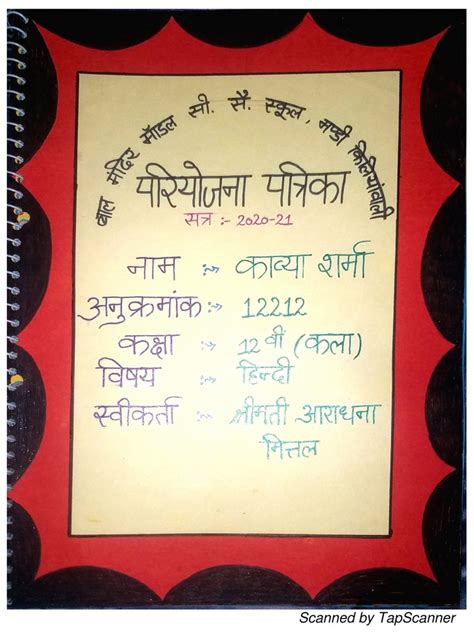 बाल मंदिर मॉडल सी. सै. स्कूल, मण्डी किलियांवाली
परियोजना पत्रिका
सत्र :- 2020-21
नाम :→ काव्या शर्मा
अनुक्रमांक :→ 12212
कक्षा :→ 12 वी (कला)
विषय :→ हिन्दी
स्वीकर्ता :→ श्रीमती आराधना
मित्तल
Scanned by TapScanner